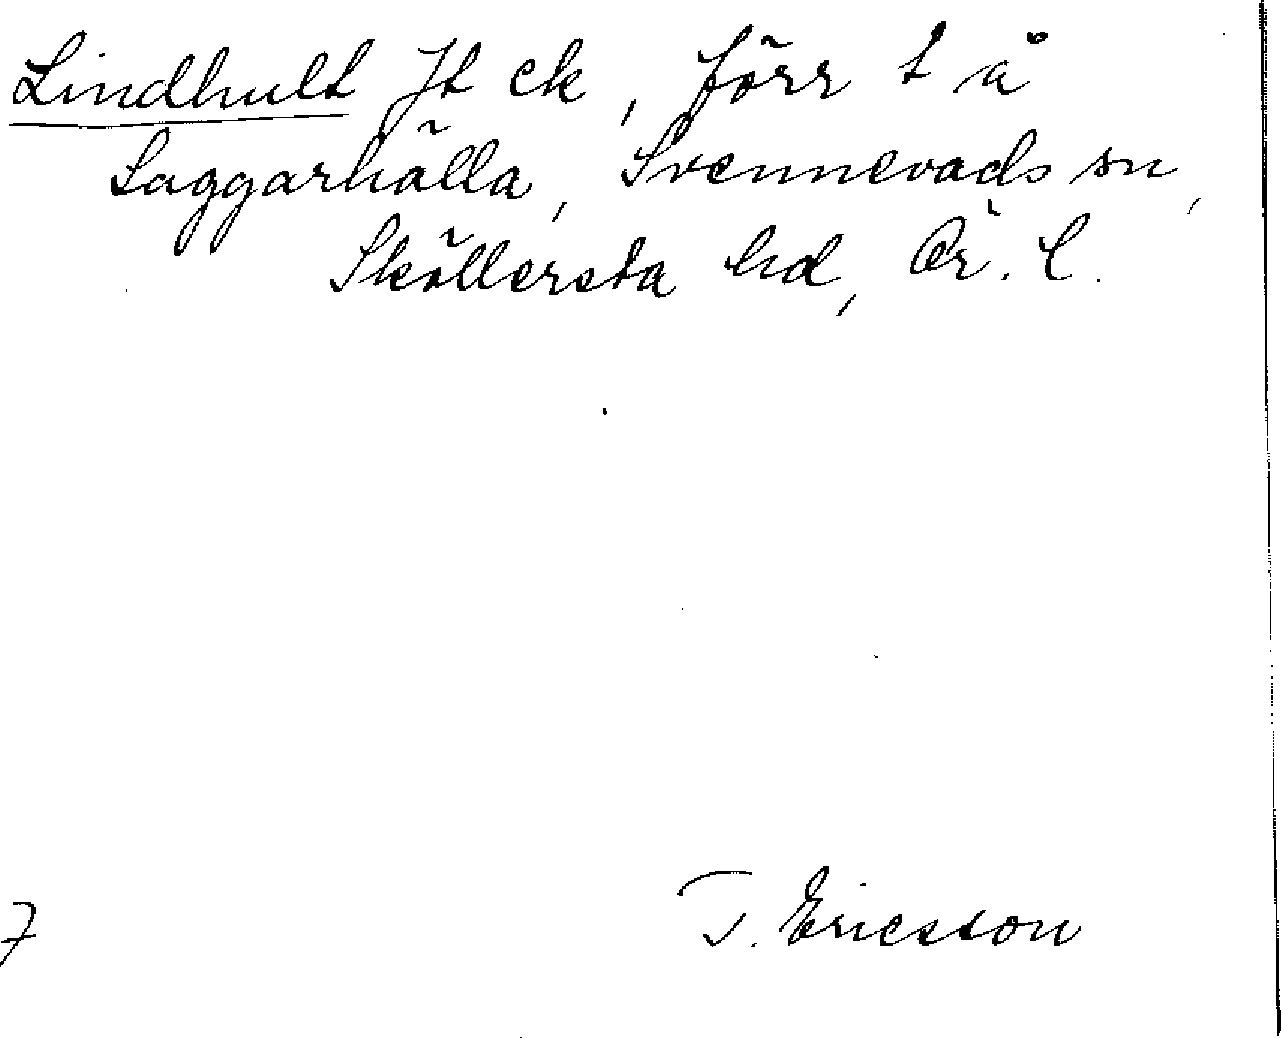 Lindhult Jt ek, förr t å
Saggarhälla, Svennevads sn,
Sköllersta hd, Ör. l.
T. Ericsson
7